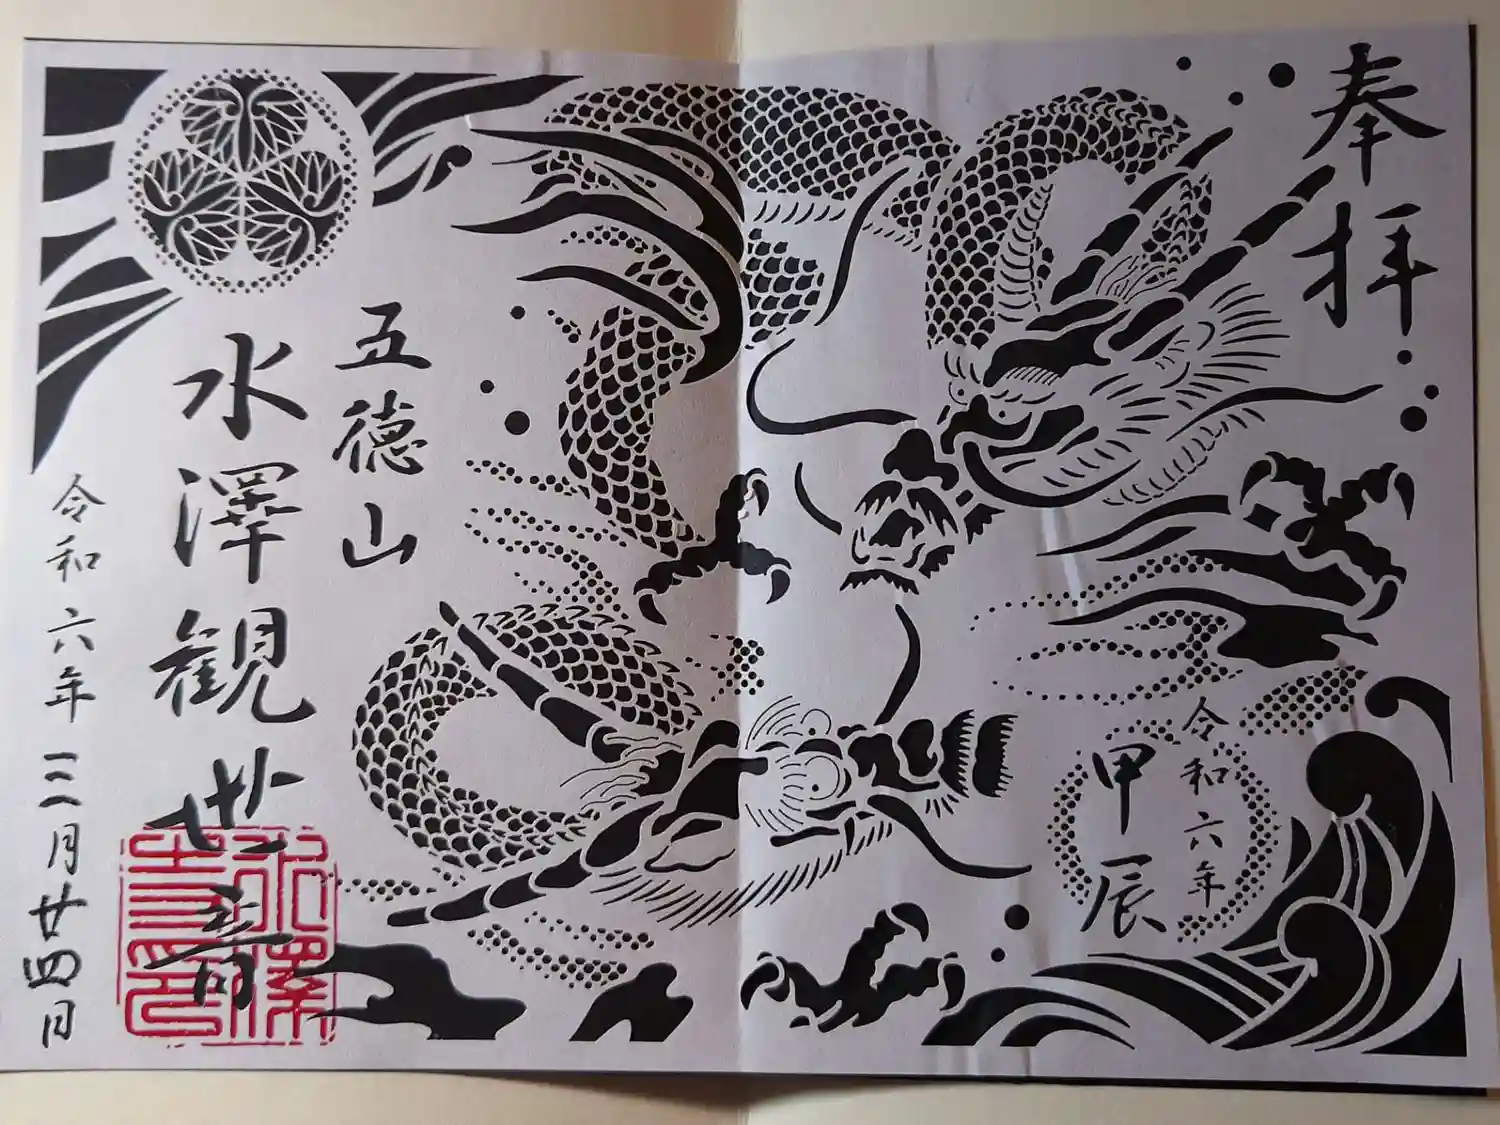 奉拝
令和六年
甲辰
五徳山
水澤観世音
水澤
寺印
令和六年三月廿四日